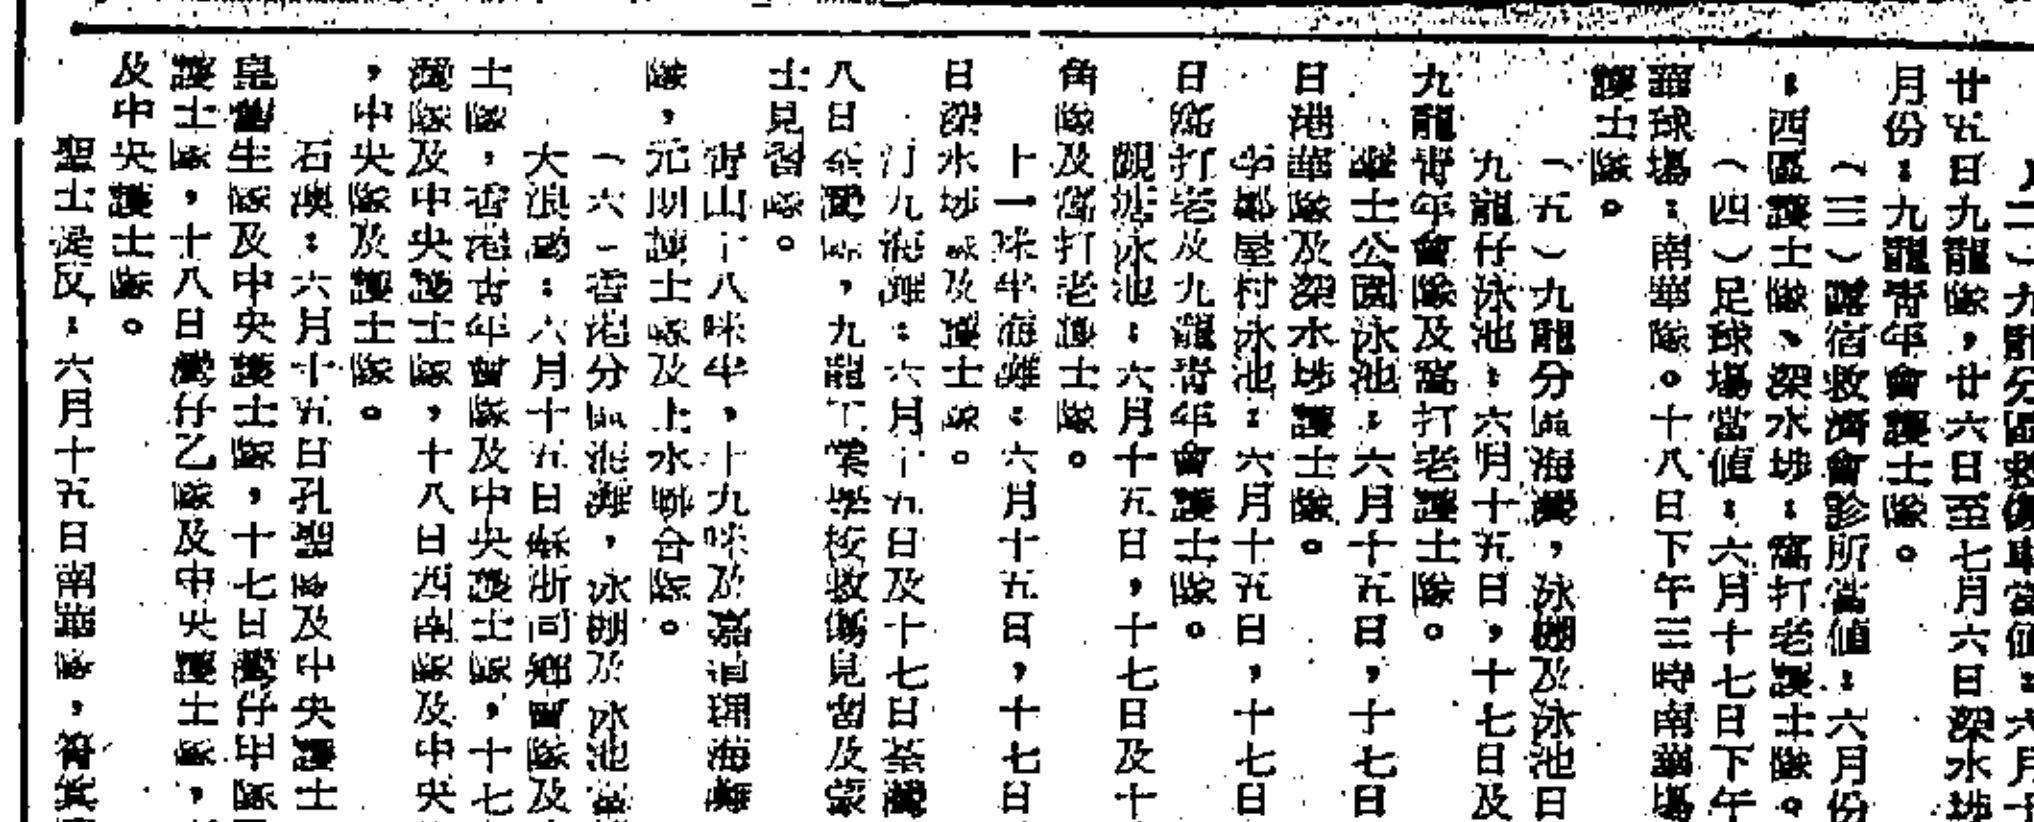 ）九龍分區救傷車當値：六月十
廿五日九龍隊，廿六日至七月六日深水埗
月份：九龍靑年會護士隊。
（三）露宿救濟會診所當値：六月份
：西區護士隊、深水埗：窩打老護士隊。
（四）足球場當値：六月十七日下午
華球場：南華隊。十八日下午三時南華場
護士隊。
（五）九龍分區海灘，泳棚及泳池日
九龍仔泳池：六月十五日，十七日及
九龍靑年會隊及窩打老護士隊。
士公園泳池：六月十五日，十七日
日港華隊及深水埗護士隊。
李鄭屋村泳池：六月十五日，十七日
日窩打老及九龍靑年會護士隊。
觀塘泳池：六月十五日，十七日及十
角隊及窩打老護士隊。
十一咪半海灘：六月十五日，十七日
日深水埗隊及護士隊。
汀九海灘：六月十五日及十七日荃灣
八日荃灣隊，九龍工業學校救傷見習及蒙
士見習隊。
靑山十八咪半，十九咪及嘉道理海灘
隊，元朗護士隊及上水聯合隊。
（六）香港分區海灘，泳棚及泳池當
大浪灣：六月十五日蘇浙同鄉會隊及
士隊，香港靑年會隊及中央護士隊，十七
灣隊及中央護士隊，十八日西南隊及中央
，中央隊及護士隊。
石澳：六月十五日孔聖隊及中央護士
皇舊生隊及中央護士隊，十七日灣仔甲隊
護士隊，十八日灣仔乙隊及中央護士隊，
及中央護士隊。
聖士提反：六月十五日南華隊，筲箕